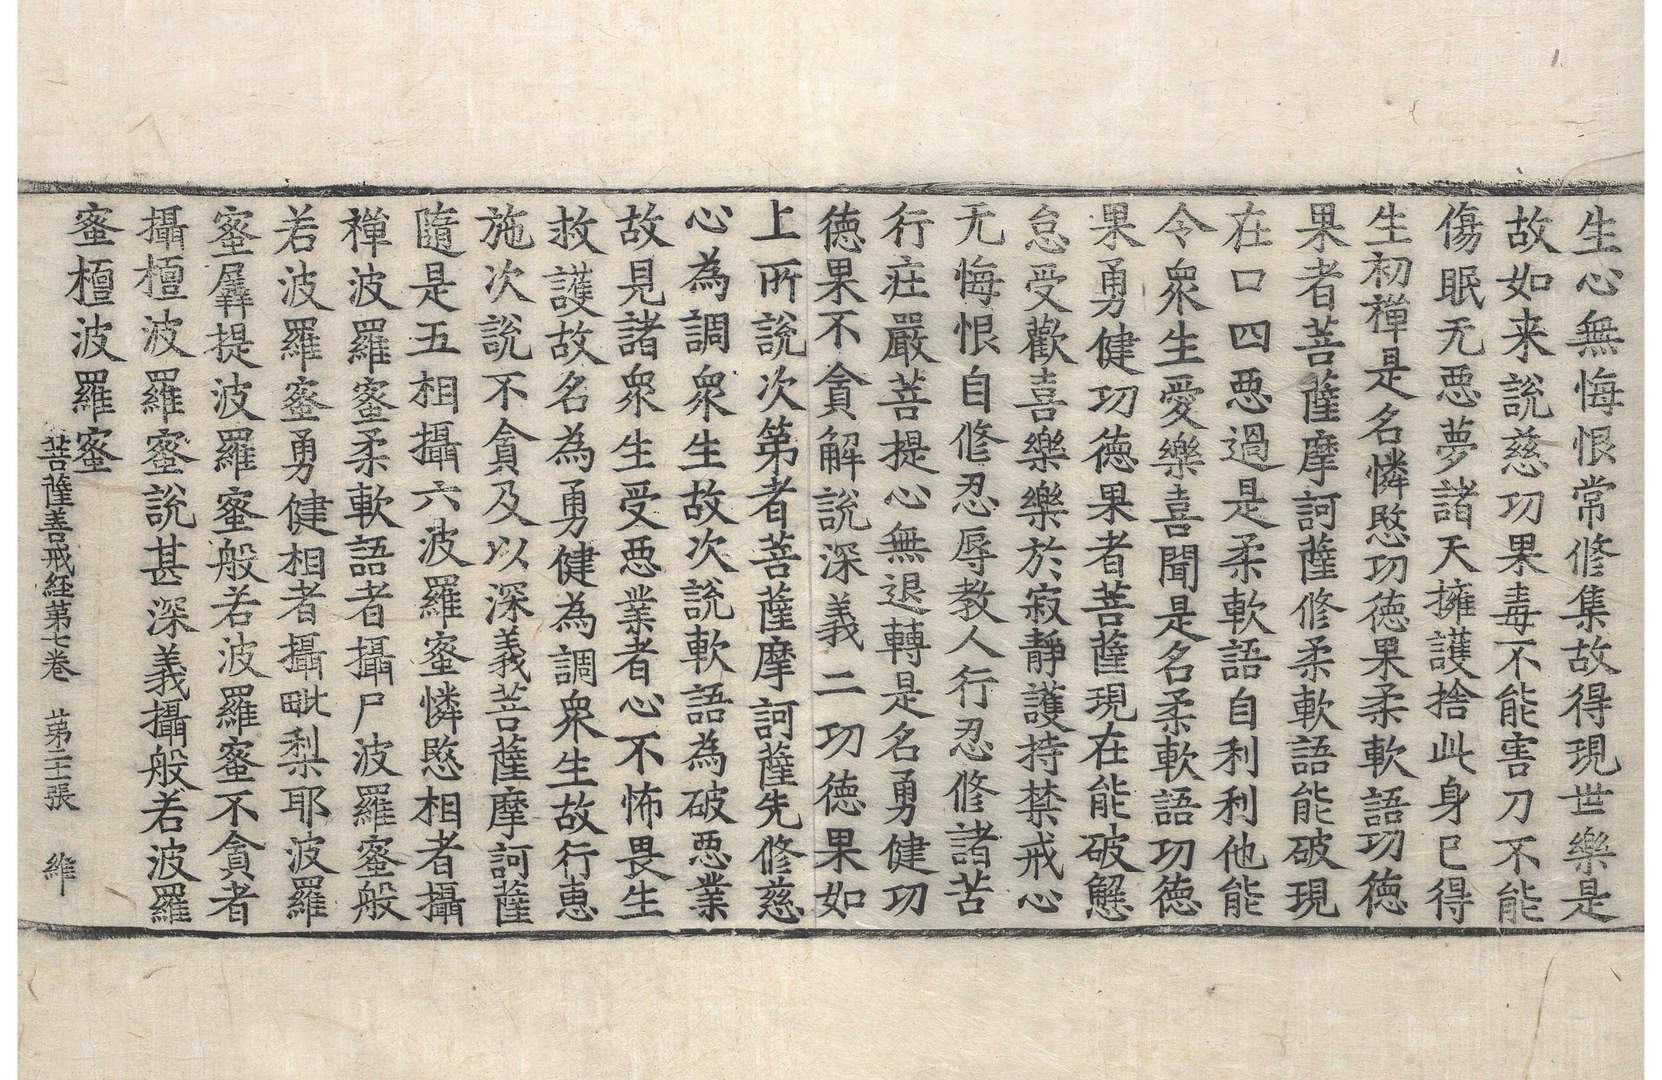 生心無悔恨常修集故得現世樂是
故如来說慈功果毒不能害刀不能
傷眠无惡夢諸天擁護捨此身已得
生初禪是名憐愍功德果柔軟語功德
果者菩薩摩訶薩修柔軟語能破現
在口四惡過是柔軟語自利利他能
令衆生愛樂喜聞是名柔軟語功德
果勇健功德果者菩薩現在能破懈
怠受歡喜樂樂於寂靜護持禁戒心
无悔恨自修忍辱教人行忍修諸苦
行莊嚴菩提心無退轉是名勇健功
德果不貪解說深義二功德果如
上所說次第者菩薩摩訶薩先修慈
心為調衆生故次說軟語為破惡業
故見諸衆生受惡業者心不怖畏生
救護故名為勇健為調衆生故行惠
施次說不貪及以深義菩薩摩訶薩
隨是五相攝六波羅蜜憐愍相者攝
禪波羅蜜柔軟語者攝尸波羅蜜般
若波羅蜜勇健相者攝毗梨耶波羅
蜜羼提波羅蜜般若波羅蜜不貪者
攝檀波羅蜜說甚深義攝般若波羅
蜜檀波羅蜜
菩薩善戒経第七卷 第二十張 維